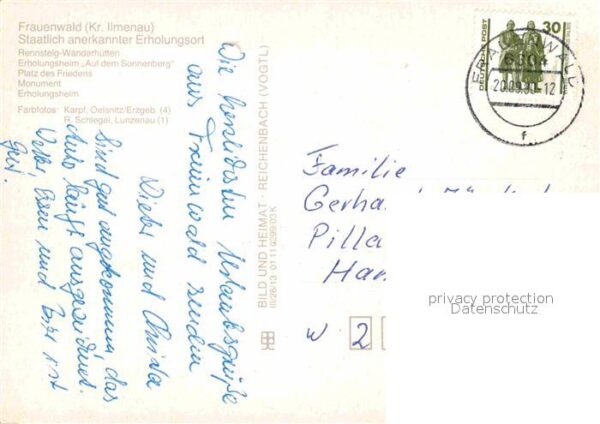 Frauenwald (Kr. Ilmenau)
Staatlich anerkannter Erholungsort
Rennsteig-Wanderhütten
Erholungsheim „Auf dem Sonnenberg"
Platz des Friedens
Monument
Erholungsheim
Farbfotos: Karpf, Oelsnitz/Erzgeb. (4)
R. Schlegel, Lunzenau (1)
Die herzlichsten Urlaubsgrüße
aus Frauenwald senden
Dieter und Christa
Sind gut angekommen, das
Auto läuft ausgezeichnet.
Wetter, Essen und Bier ist
gut!
BILD UND HEIMAT · REICHENBACH (VOGTL)
III/26/13 01 11 0299/03 K
DEUTSCHE POST
30
FRAUENWALD
6304
20.09.90-12
f
Familie
Gerha
Pilla
Han
W 2
privacy protection
Datenschutz